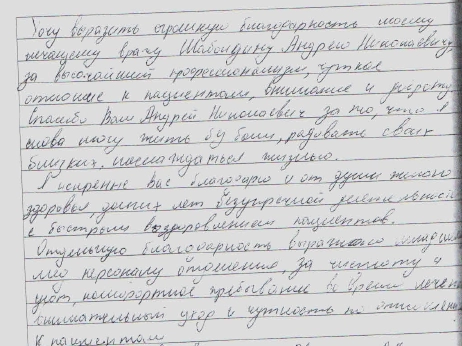 Хочу выразить огромную благодарность моему
лечащему врачу Андрею Николаевичу
за высочайший профессионализм, чуткое
отношение к пациентам, внимание и доброту.
Спасибо Вам Андрей Николаевич за то, что я
снова могу жить без боли, радовать своих
близких, наслаждаться жизнью.
Я искренне Вас благодарю и от души желаю
здоровья, долгих лет безупречной деятельности
с быстрым выздоровлением пациентов.
Отдельную благодарность выражаю
персоналу отделения, за чистоту и
уют, комфортное пребывание во время лечения
внимательный уход и чуткость по отношению
к пациентам